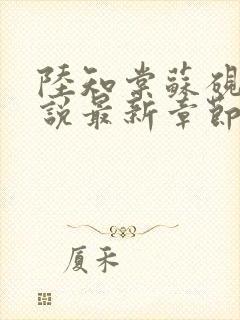 陸知棠蘇硯
說最新章節
厦禾